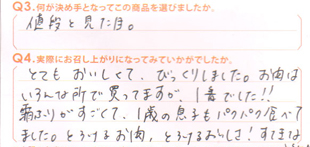 Q3.何が決め手となってこの商品を選びましたか。
値段と見た目。
Q4.実際にお召し上がりになってみていかがでしたか。
とても おいしくて、びっくりしました。お肉は
いろんな所で買ってますが、1番でした!!
霜ふりがすごくて、1歳の息子もパクパク食べて
ました。とろけるお肉、とろけるおいしさ!すてきな